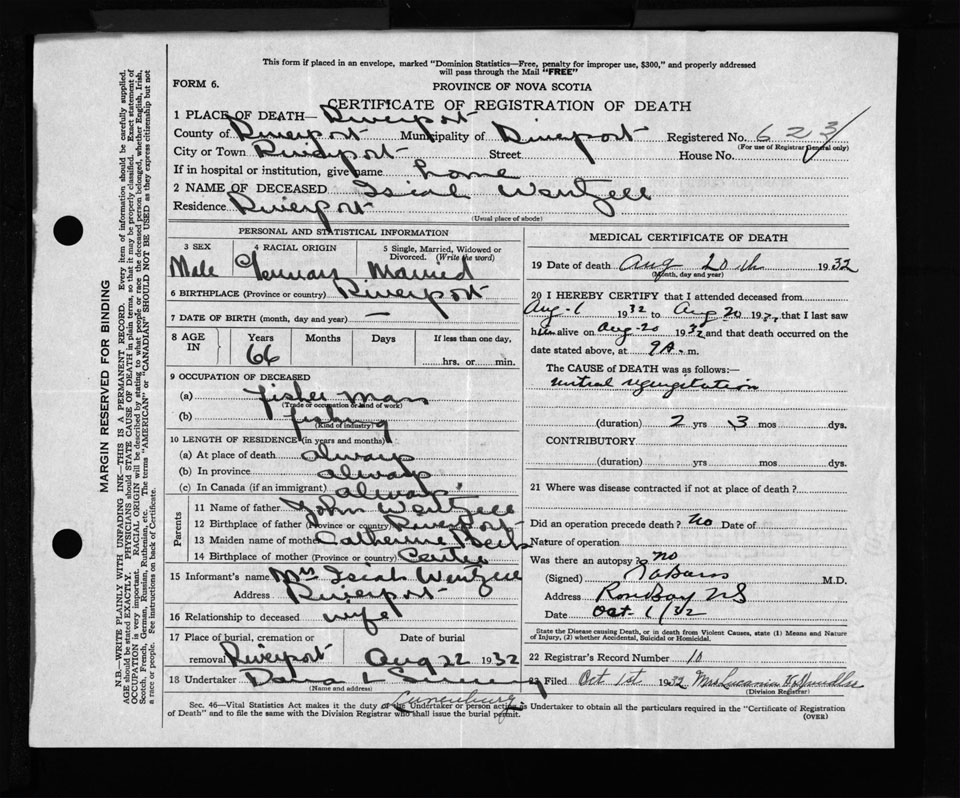 This form if placed in an envelope, marked "Dominion Statistics—Free, penalty for improper use, $300," and properly addressed
will pass through the Mail "FREE"
FORM 6.
PROVINCE OF NOVA SCOTIA
CERTIFICATE OF REGISTRATION OF DEATH
1 PLACE OF DEATH— Riverport
County of Riverport Municipality of Riverport Registered No. 623
(For use of Registrar General only)
City or Town Riverport Street House No.
If in hospital or institution, give name home
2 NAME OF DECEASED Isiah Wentzell
Residence Riverport
(Usual place of abode)
PERSONAL AND STATISTICAL INFORMATION
3 SEX 4 RACIAL ORIGIN 5 Single, Married, Widowed or Divorced. (Write the word)
Male Germany Married
6 BIRTHPLACE (Province or country) Riverport
7 DATE OF BIRTH (month, day and year) —
8 AGE IN Years Months Days If less than one day,
66 hrs. or min.
9 OCCUPATION OF DECEASED
(a) fisher man
(Trade or occupation or kind of work)
(b) fishing
(Kind of industry)
10 LENGTH OF RESIDENCE (in years and months)
(a) At place of death always
(b) In province always
(c) In Canada (if an immigrant) always
Parents
11 Name of father John Wentzell
12 Birthplace of father (Province or country) Riverport
13 Maiden name of mother Catherine
14 Birthplace of mother (Province or country)
15 Informant's name Mrs Isiah Wentzell
Address Riverport
16 Relationship to deceased wife
17 Place of burial, cremation or removal Riverport Date of burial Aug 22 1932
18 Undertaker
(Name and address)
Lunenburg
MEDICAL CERTIFICATE OF DEATH
19 Date of death Aug 20th 1932
(Month, day and year)
20 I HEREBY CERTIFY that I attended deceased from
Aug-1 1932 to Aug 20 1932, that I last saw
him alive on Aug-20 1932 and that death occurred on
date stated above, at 9 A. m.
The CAUSE of DEATH was as follows:—
mitral regurgitation
(duration) 2 yrs 3 mos dys.
CONTRIBUTORY
(duration) yrs mos dys.
21 Where was disease contracted if not at place of death?
Did an operation precede death? no Date of
Nature of operation
Was there an autopsy? no
(Signed) M.D.
Address Rose Bay NS
Date Oct 1/32
State the Disease causing Death, or in death from Violent Causes, state (1) Means and Nature
of Injury, (2) whether Accidental, Suicidal or Homicidal.
22 Registrar's Record Number 10
23 Filed Oct 1st 1932 Mrs
(Division Registrar)
Sec. 46—Vital Statistics Act makes it the duty of the Undertaker or person acting as Undertaker to obtain all the particulars required in the "Certificate of Registration
of Death" and to file the same with the Division Registrar who shall issue the burial permit.
(OVER)
MARGIN RESERVED FOR BINDING
N.B.—WRITE PLAINLY WITH UNFADING INK—THIS IS A PERMANENT RECORD. Every item of information should be carefully supplied.
AGE should be stated EXACTLY. PHYSICIANS should STATE CAUSE OF DEATH in plain terms, so that it may be properly classified. Exact statement of
OCCUPATION is very important. RACIAL ORIGIN will be described by stating to what people or race the deceased person belonged, whether English, Irish,
Scotch, French, German, Russian, Ruthenian, etc. The terms "AMERICAN" or "CANADIAN" SHOULD NOT BE USED as they express citizenship but not
a race or people. See instructions on back of Certificate.